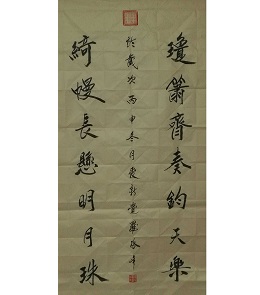 瓊簫齊奏鈞天樂
綺幔長懸明月珠
歲次丙申冬月